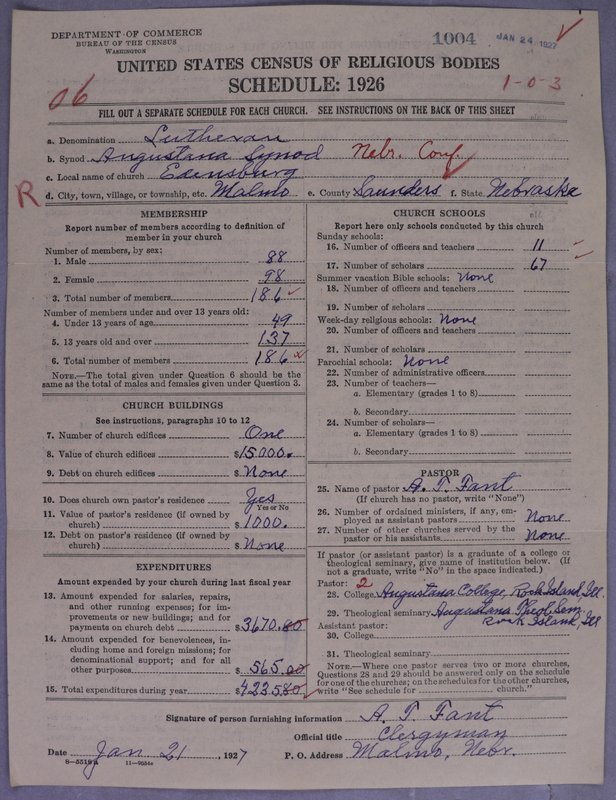 DEPARTMENT OF COMMERCE
BUREAU OF THE CENSUS
WASHINGTON
1004
JAN 24 1927
UNITED STATES CENSUS OF RELIGIOUS BODIES
SCHEDULE: 1926
06
1-0-3
FILL OUT A SEPARATE SCHEDULE FOR EACH CHURCH. SEE INSTRUCTIONS ON THE BACK OF THIS SHEET
a. Denomination Lutheran
b. Synod Augustana Synod Nebr. Conf.
c. Local name of church Edensburg
R d. City, town, village, or township, etc. Malmo e. County Saunders f. State Nebraska
MEMBERSHIP
Report number of members according to definition of
member in your church
Number of members, by sex:
1. Male 88
2. Female 98
3. Total number of members 186
Number of members under and over 13 years old:
4. Under 13 years of age 49
5. 13 years old and over 137
6. Total number of members 186
NOTE.—The total given under Question 6 should be the
same as the total of males and females given under Question 3.
CHURCH BUILDINGS
See instructions, paragraphs 10 to 12
7. Number of church edifices One
8. Value of church edifices $15000.
9. Debt on church edifices $ None
10. Does church own pastor's residence Yes
Yes or No
11. Value of pastor's residence (if owned by
church) $ 1000.
12. Debt on pastor's residence (if owned by
church) $ None
EXPENDITURES
Amount expended by your church during last fiscal year
13. Amount expended for salaries, repairs,
and other running expenses; for im-
provements or new buildings; and for
payments on church debt $3670.80
14. Amount expended for benevolences, in-
cluding home and foreign missions; for
denominational support; and for all
other purposes $565.00
15. Total expenditures during year $4235.80
CHURCH SCHOOLS
Report here only schools conducted by this church
Sunday schools:
16. Number of officers and teachers 11
17. Number of scholars 67
Summer vacation Bible schools: None
18. Number of officers and teachers
19. Number of scholars
Week-day religious schools: None
20. Number of officers and teachers
21. Number of scholars
Parochial schools: None
22. Number of administrative officers
23. Number of teachers—
a. Elementary (grades 1 to 8)
b. Secondary
24. Number of scholars—
a. Elementary (grades 1 to 8)
b. Secondary
PASTOR
25. Name of pastor A. T. Fant
(If church has no pastor, write "None")
26. Number of ordained ministers, if any, em-
ployed as assistant pastors None
27. Number of other churches served by the
pastor or his assistants None
If pastor (or assistant pastor) is a graduate of a college or
theological seminary, give name of institution below. (If
not a graduate, write "No" in the space indicated.)
Pastor: 2
28. College Augustana College, Rock Island, Ill.
29. Theological seminary Augustana Theol. Sem.
Assistant pastor: Rock Island, Ill
30. College
31. Theological seminary
NOTE.—Where one pastor serves two or more churches,
Questions 28 and 29 should be answered only on the schedule
for one of the churches; on the schedules for the other churches,
write "See schedule for church."
Signature of person furnishing information A. T. Fant
Official title Clergyman
Date Jan 21, 1927 P. O. Address Malmo, Nebr.